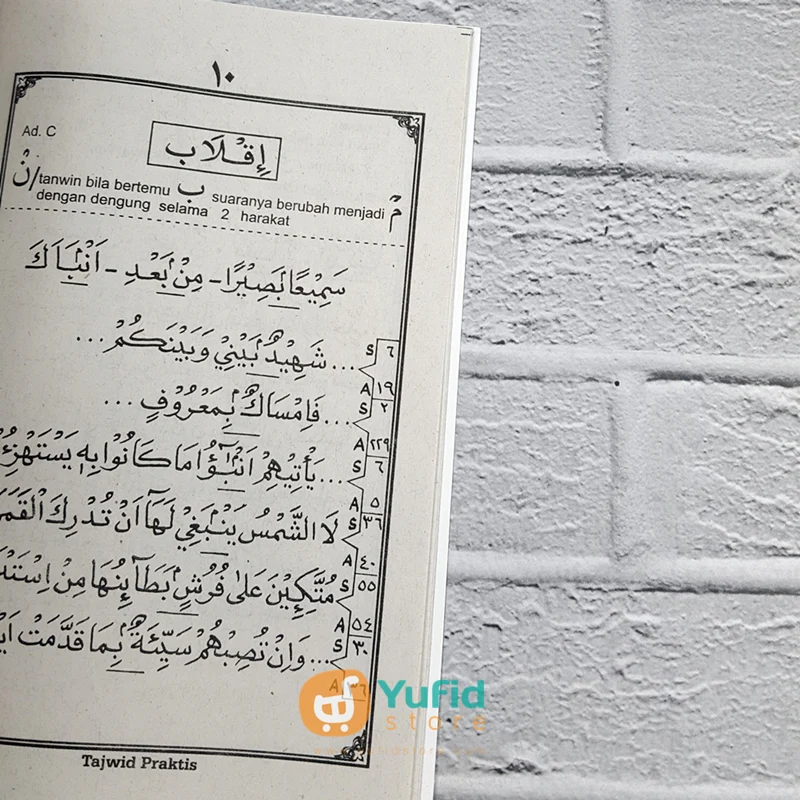 ١٠
Ad. C
إِقْلَاب
نْ/tanwin bila bertemu ب suaranya berubah menjadi مْ
dengan dengung selama 2 harakat
سَمِيْعًا بَصِيْرًا - مِنْ بَعْدِ - اَنْبَاَكَ
S ٦ ... شَهِيْدٌ بَيْنِيْ وَبَيْنَكُمْ ...
A ١٩
S ٢ ... فَاِمْسَاكٌ بِمَعْرُوْفٍ ...
A ٢٢٩
S ٦ ... يَأْتِيْهِمْ اَنْبٰٓؤُا مَا كَانُوْا بِهٖ
A ٥
S ٣٦ لَا الشَّمْسُ يَنْبَغِيْ لَهَآ اَنْ تُدْرِكَ
A ٤٠
S ٥٥ مُتَّكِئِيْنَ عَلٰى فُرُشٍ بَطَآئِنُهَا مِنْ
A ٥٤
S ٣٠ ... وَاِنْ تُصِبْهُمْ سَيِّئَةٌ بِمَا قَدَّمَتْ
A ٣٦
Yufid
store
Tajwid Praktis